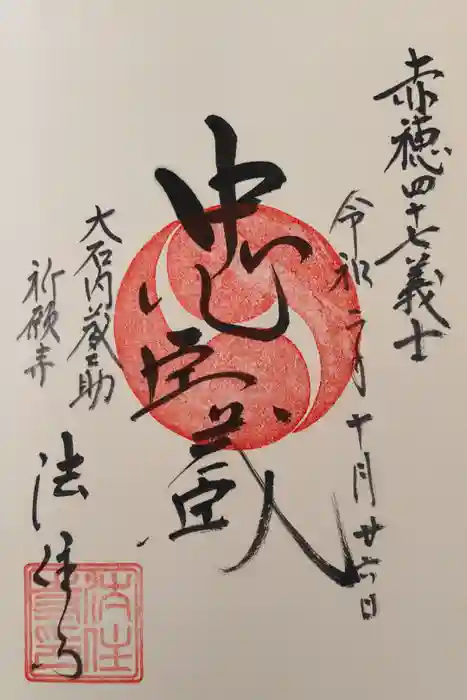 赤穂四十七義士
令和二年十月廿六日
忠臣蔵
大石内蔵之助
祈願寺
法住寺